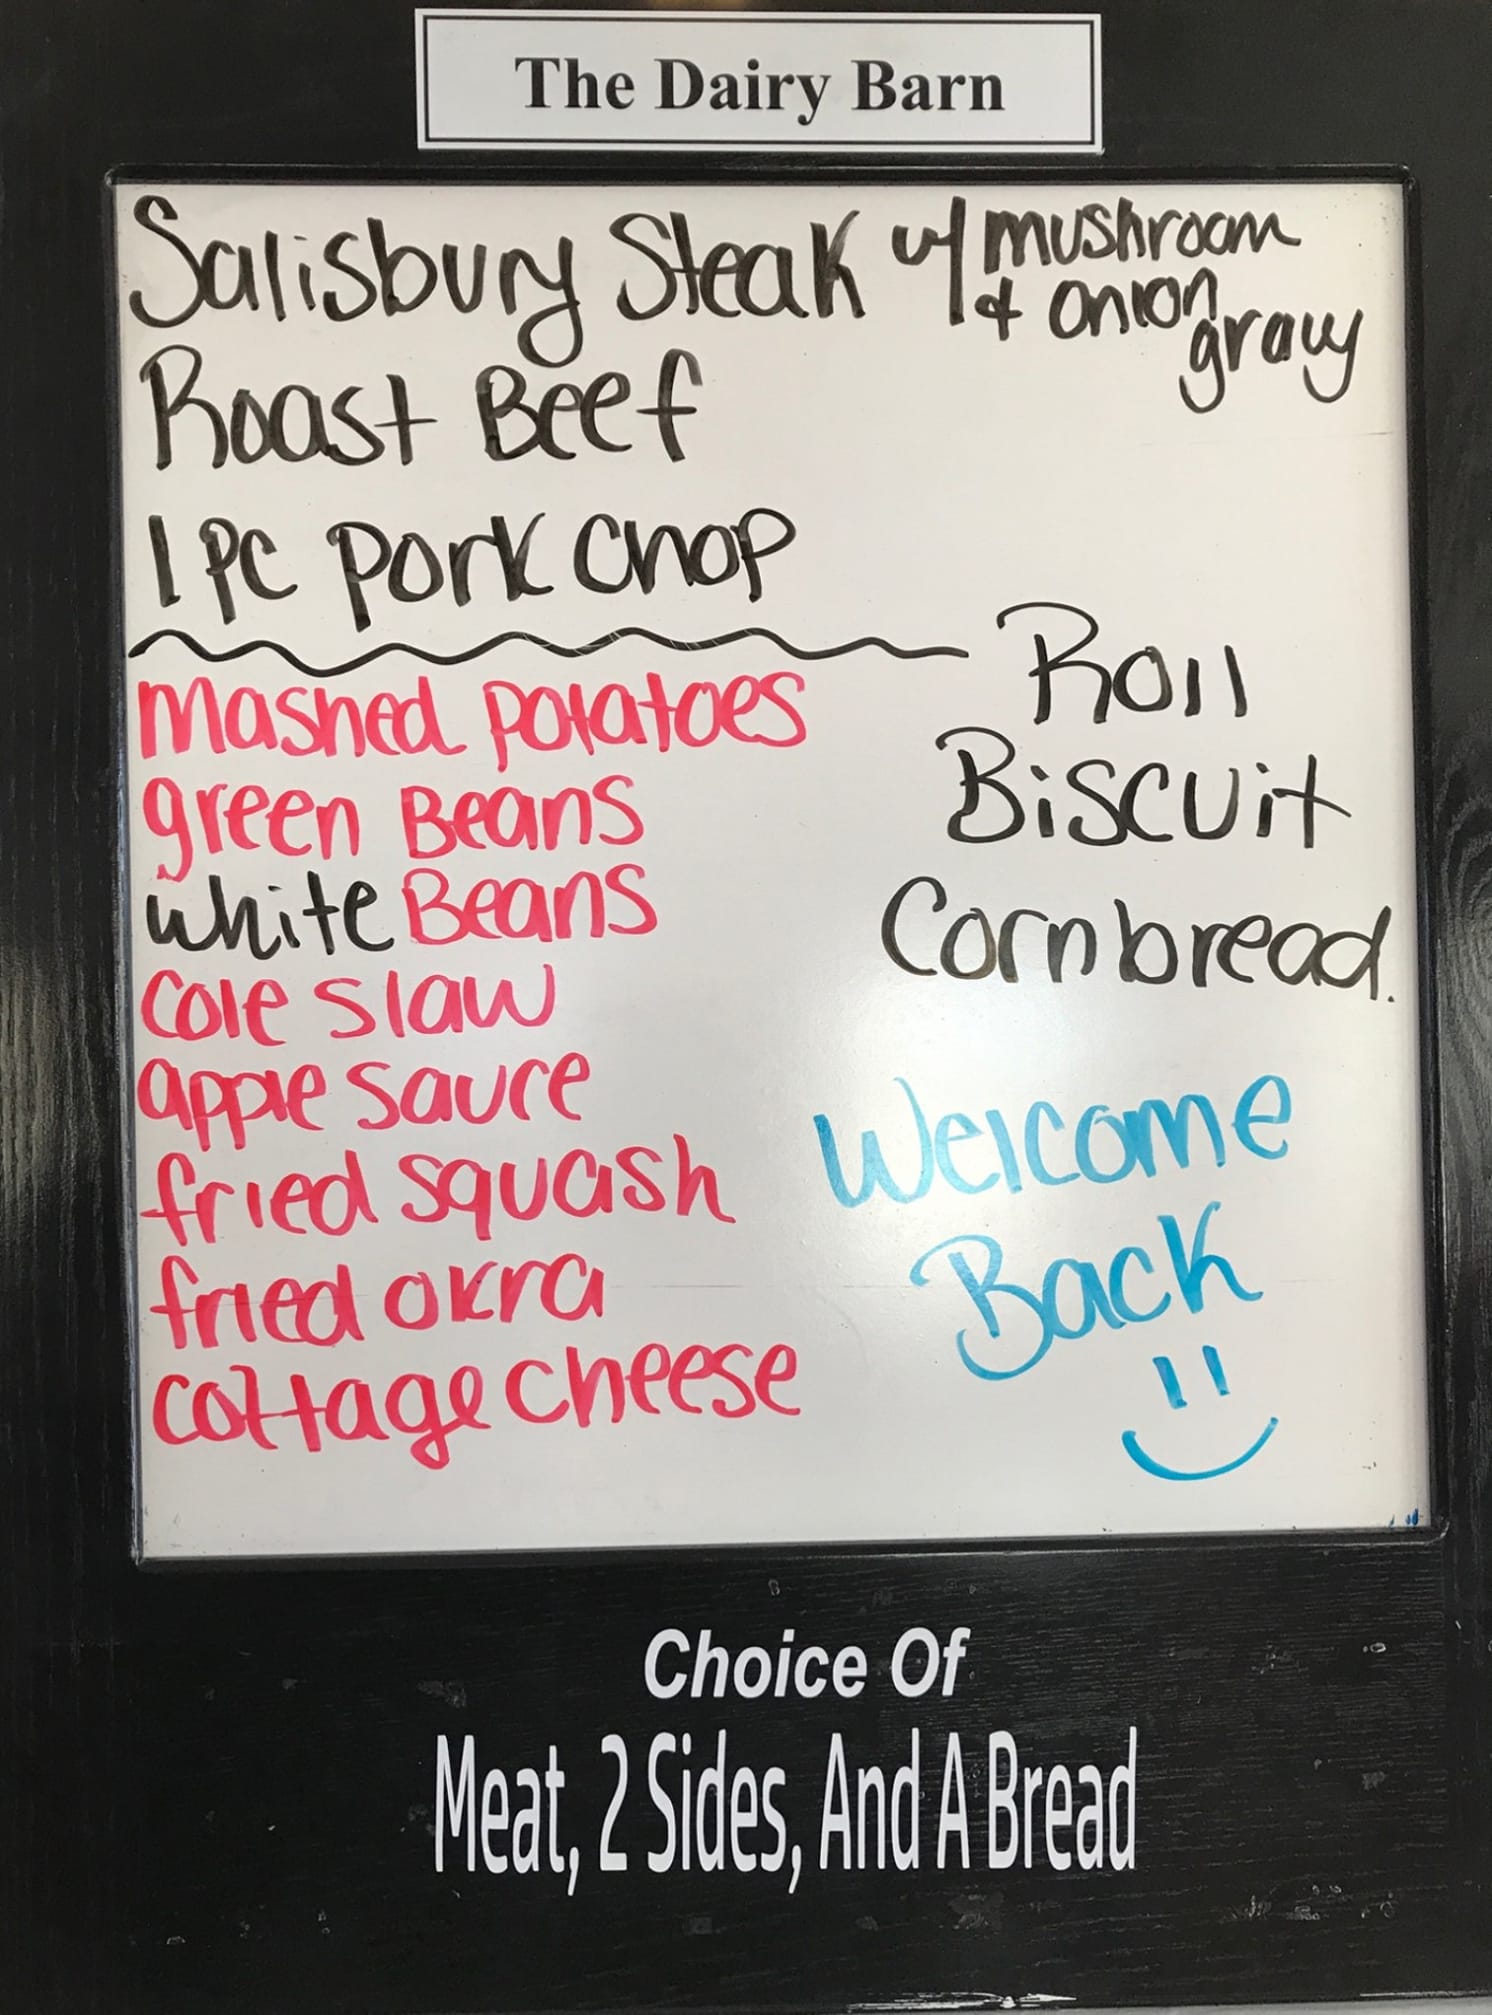 The Dairy Barn
Salisbury Steak w/ mushroom
& onion
gravy
Roast Beef
1 PC Pork Chop
mashed potatoes
green Beans
white Beans
Cole slaw
apple sauce
fried squash
fried okra
cottage cheese
Roll
Biscuit
Cornbread.
Welcome
Back
Choice Of
Meat, 2 Sides, And A Bread